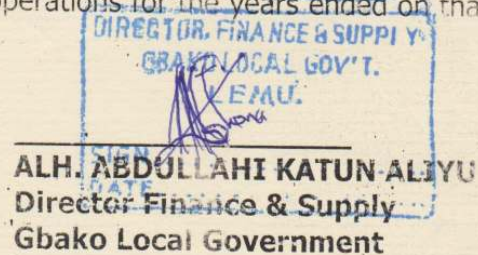 operations for the years ended on tha
DIRECTOR, FINANCE & SUPPLY
GBAKO LOCAL GOV'T.
LEMU.
SIGN
ALH. ABDULLAHI KATUN-ALIYU
DATE
Director Finance & Supply
Gbako Local Government